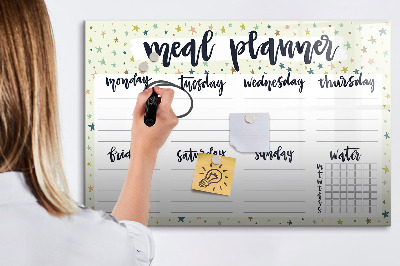 meal planner
monday tuesday wednesday thursday
friday saturday sunday water
M
T
W
T
F
S
S